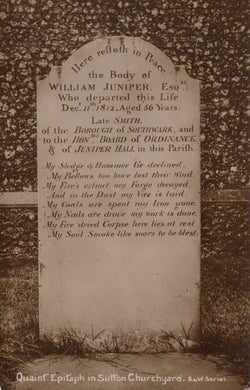 Here resteth in Peace
the Body of
WILLIAM JUNIPER, ESQ.RE
Who departed this Life
Dec. 11th 1812. Aged 56 Years.
Late SMITH,
of the BOROUGH of SOUTHWARK, and
to the HON.ble BOARD of ORDINANCE
& of JUNIPER HALL in this Parish.
My Sledge & Hammer lie declined,
My Bellows too have lost their Wind,
My Fire's extinct my Forge decayed,
And in the Dust my Vice is laid.
My Coals are spent my Iron gone.
My Nails are drove my work is done,
My Fire dried Corpse here lies at rest
My Soul Smoke-like soars to be blest.
Quaint Epitaph in Sutton Churchyard. S&W. Series.